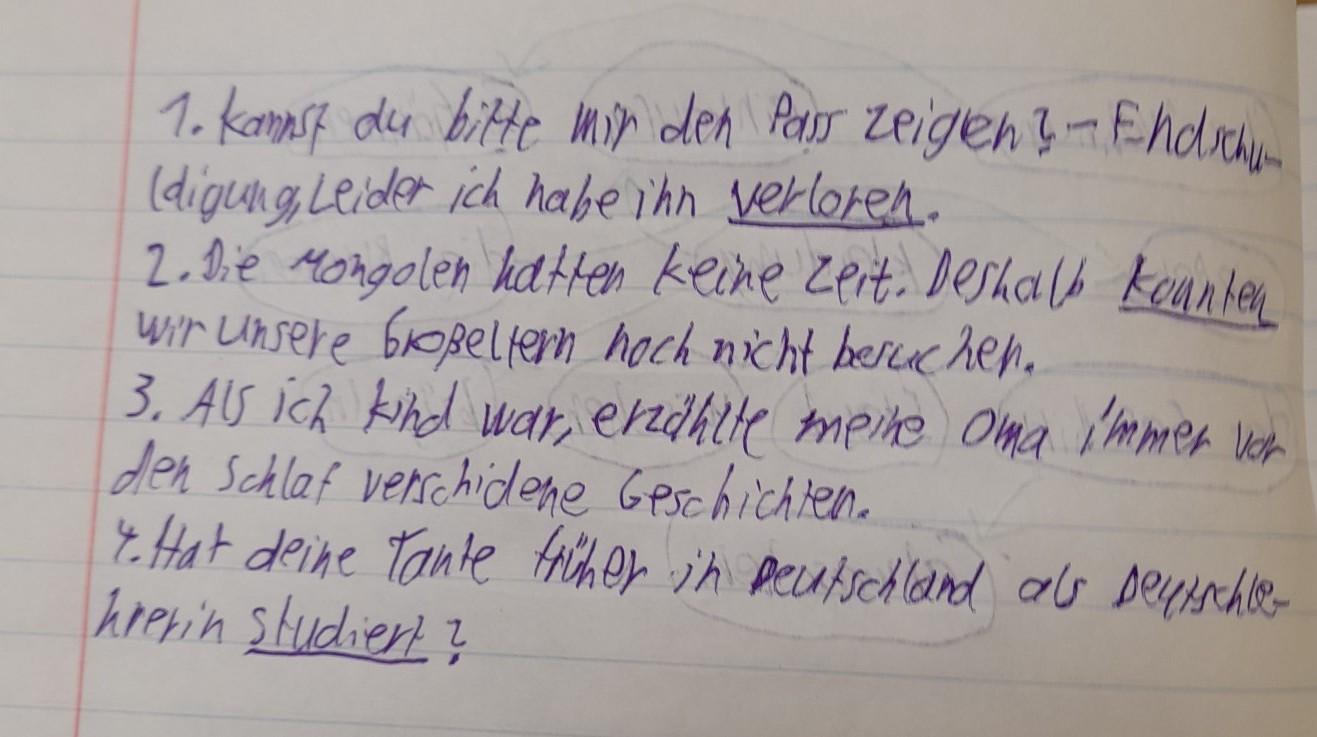 1. kannst du bitte mir den Pass zeigen? - Endschu-
ldigung, Leider ich habe ihn verloren.
2. Die Mongolen hatten keine Zeit. Deshalb konnten
wir unsere Großeltern noch nicht besuchen.
3. Als ich kind war, erzählte meine Oma immer vor
den Schlaf verschidene Geschichten.
4. Hat deine Tante früher in Deutschland als Deutschle-
hrerin studiert?